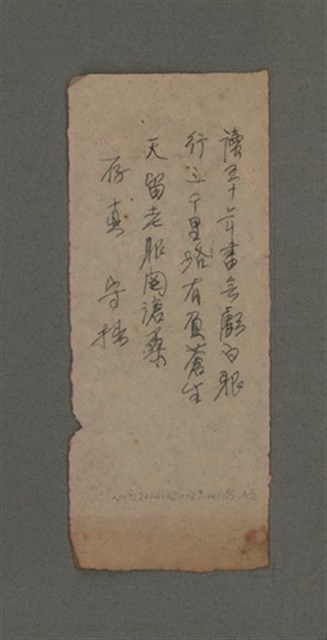 讀五十年書無虧白眼
行三千里路有負蒼生
天留老眼閱滄桑
存真 守拙